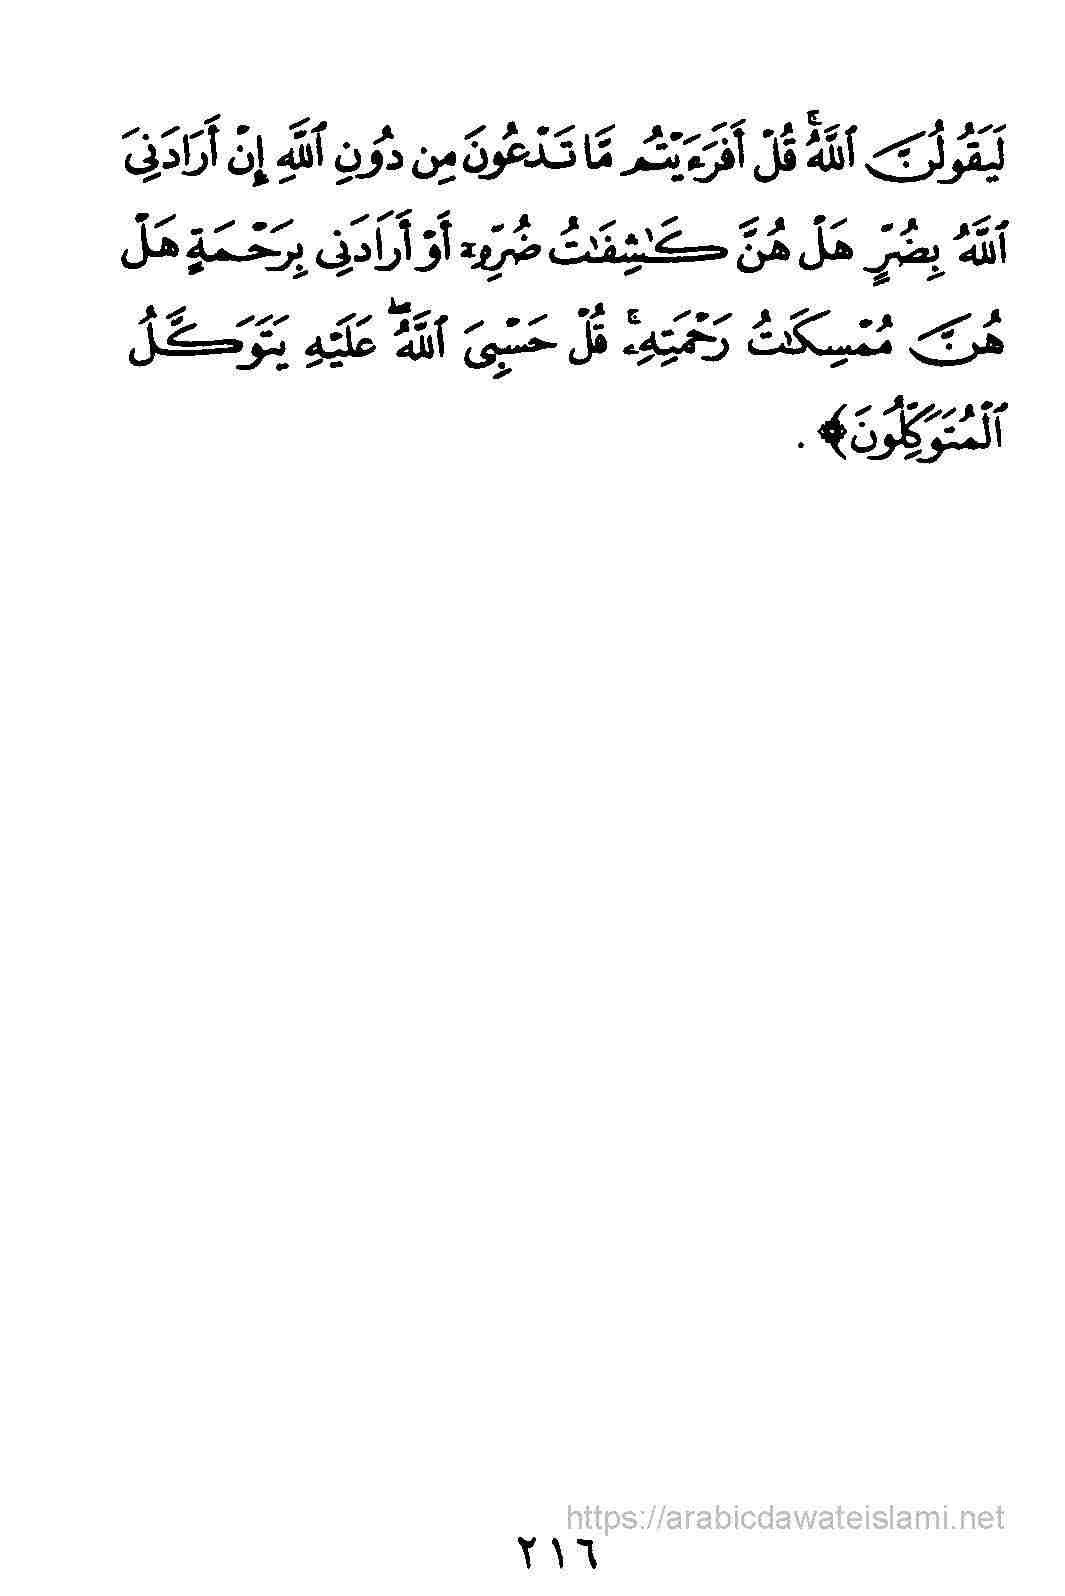 لَيَقُولُنَّ ٱللَّهُۚ قُلْ أَفَرَءَيْتُم مَّا تَدْعُونَ مِن دُونِ ٱللَّهِ إِنْ أَرَادَنِىَ
ٱللَّهُ بِضُرٍّ هَلْ هُنَّ كَـٰشِفَـٰتُ ضُرِّهِۦٓ أَوْ أَرَادَنِى بِرَحْمَةٍ هَلْ
هُنَّ مُمْسِكَـٰتُ رَحْمَتِهِۦۚ قُلْ حَسْبِىَ ٱللَّهُۖ عَلَيْهِ يَتَوَكَّلُ
ٱلْمُتَوَكِّلُونَ﴾ .
https://arabicdawateislami.net
٢١٦